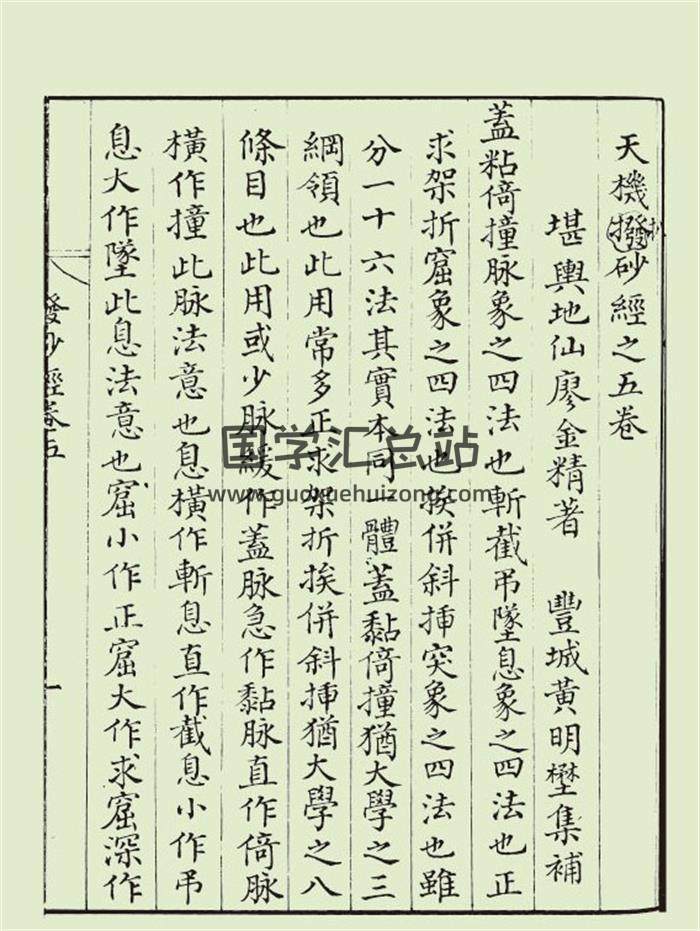 天機撥砂經之五卷
堪輿地仙廖金精著 豐城黃明壄集補
蓋粘倚撞脉象之四法也斬截吊墜息象之四法也正
求架折窟象之四法也挨併斜揷突象之四法也雖
分一十六法其實本同一體蓋黏倚撞猶大學之三
綱領也此用常多正求架折挨併斜揷猶大學之八
條目也此用或少脉緩作蓋脉急作黏脉直作倚脉
橫作撞此脉法意也息橫作斬息直作截息小作吊
息大作墜此息法意也窟小作正窟大作求窟深作
發砂經卷五
一
国学汇总站
www.guoxuehuizong.com